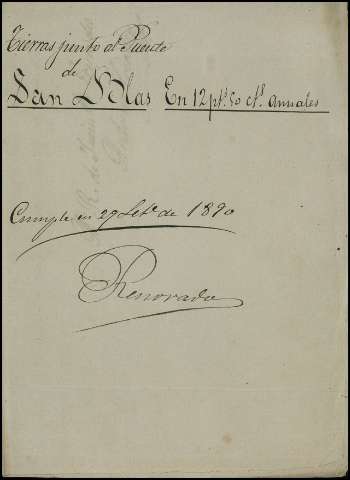 Tierras junto al Puente
de
San Blas En 12 pts. 50 cts. anuales
Cumple en 29 Setbe. de 1890
Renovado